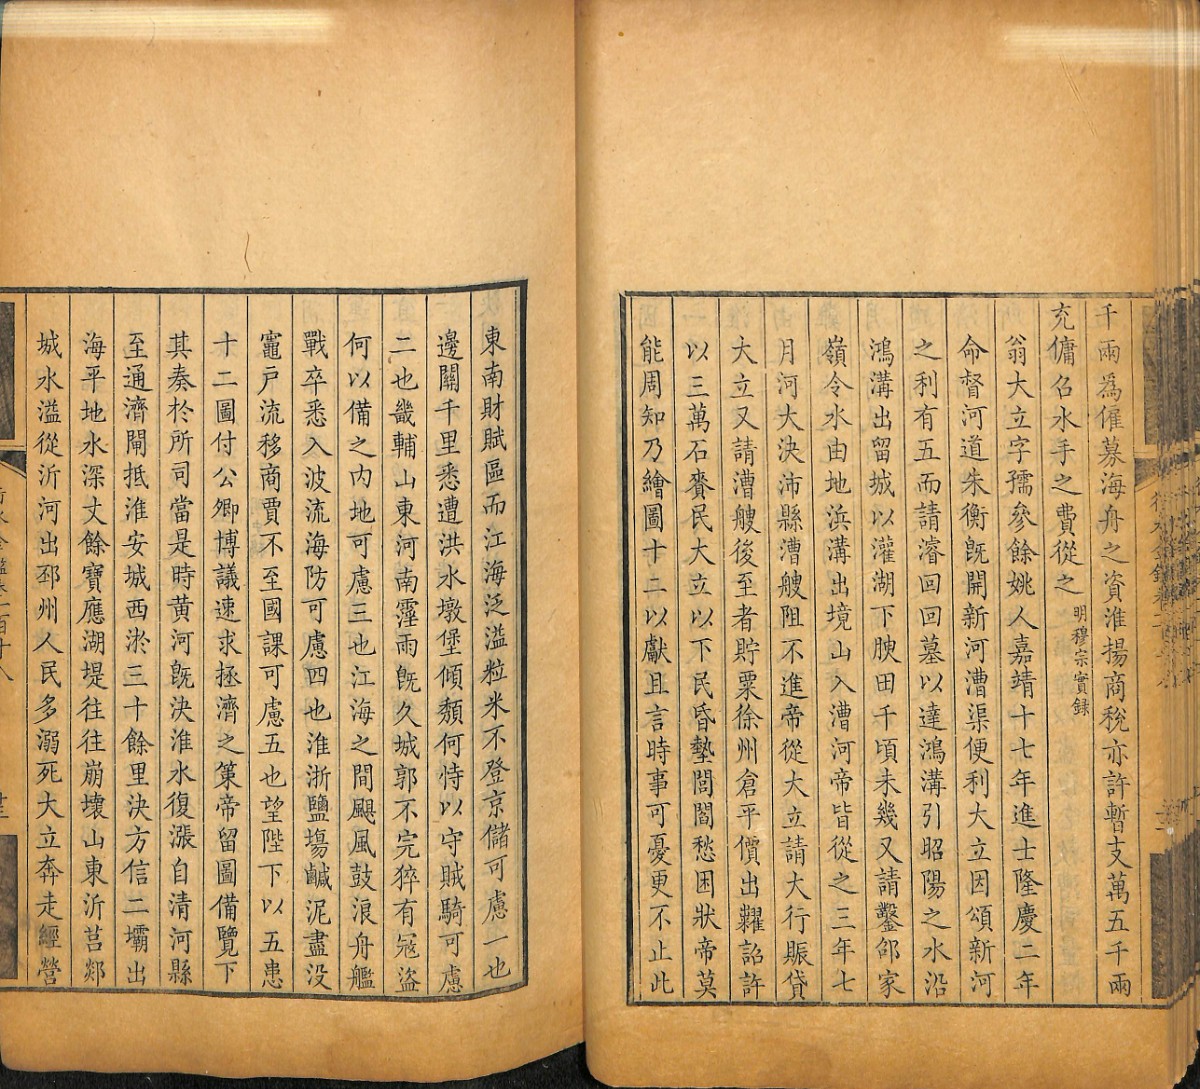 千兩爲僱募海舟之資淮揚商稅亦許暫支萬五千兩
充傭召水手之費從之明穆宗實録
翁大立字孺參餘姚人嘉靖十七年進士隆慶二年
命督河道朱衡旣開新河漕渠便利大立因頌新河
之利有五而請濬回回墓以達鴻溝引昭陽之水沿
鴻溝出留城以灌湖下腴田千頃未幾又請鑿邵家
嶺令水由地浜溝出境山入漕河帝皆從之三年七
月河大決沛縣漕艘阻不進帝從大立請大行賑貸
大立又請漕艘後至者貯粟徐州倉平價出糶詔許
以三萬石賚民大立以下民昏墊閭閻愁困狀帝莫
能周知乃繪圖十二以獻且言時事可憂更不止此
東南財賦區而江海泛溢粒米不登京儲可慮一也
邊關千里悉遭洪水墩堡傾頽何恃以守賊騎可慮
二也畿輔山東河南霪雨旣久城郭不完猝有冦盜
何以備之內地可慮三也江海之間颶風鼓浪舟艦
戰卒悉入波流海防可慮四也淮浙鹽塲鹹泥盡没
竈戶流移商賈不至國課可慮五也望陛下以五患
十二圖付公卿博議速求拯濟之策帝留圖備覽下
其奏於所司當是時黄河旣決淮水復漲自清河縣
至通濟閘抵淮安城西淤三十餘里決方信二壩出
海平地水深丈餘寶應湖堤往往崩壞山東沂莒郯
城水溢從沂河出邳州人民多溺死大立奔走經營